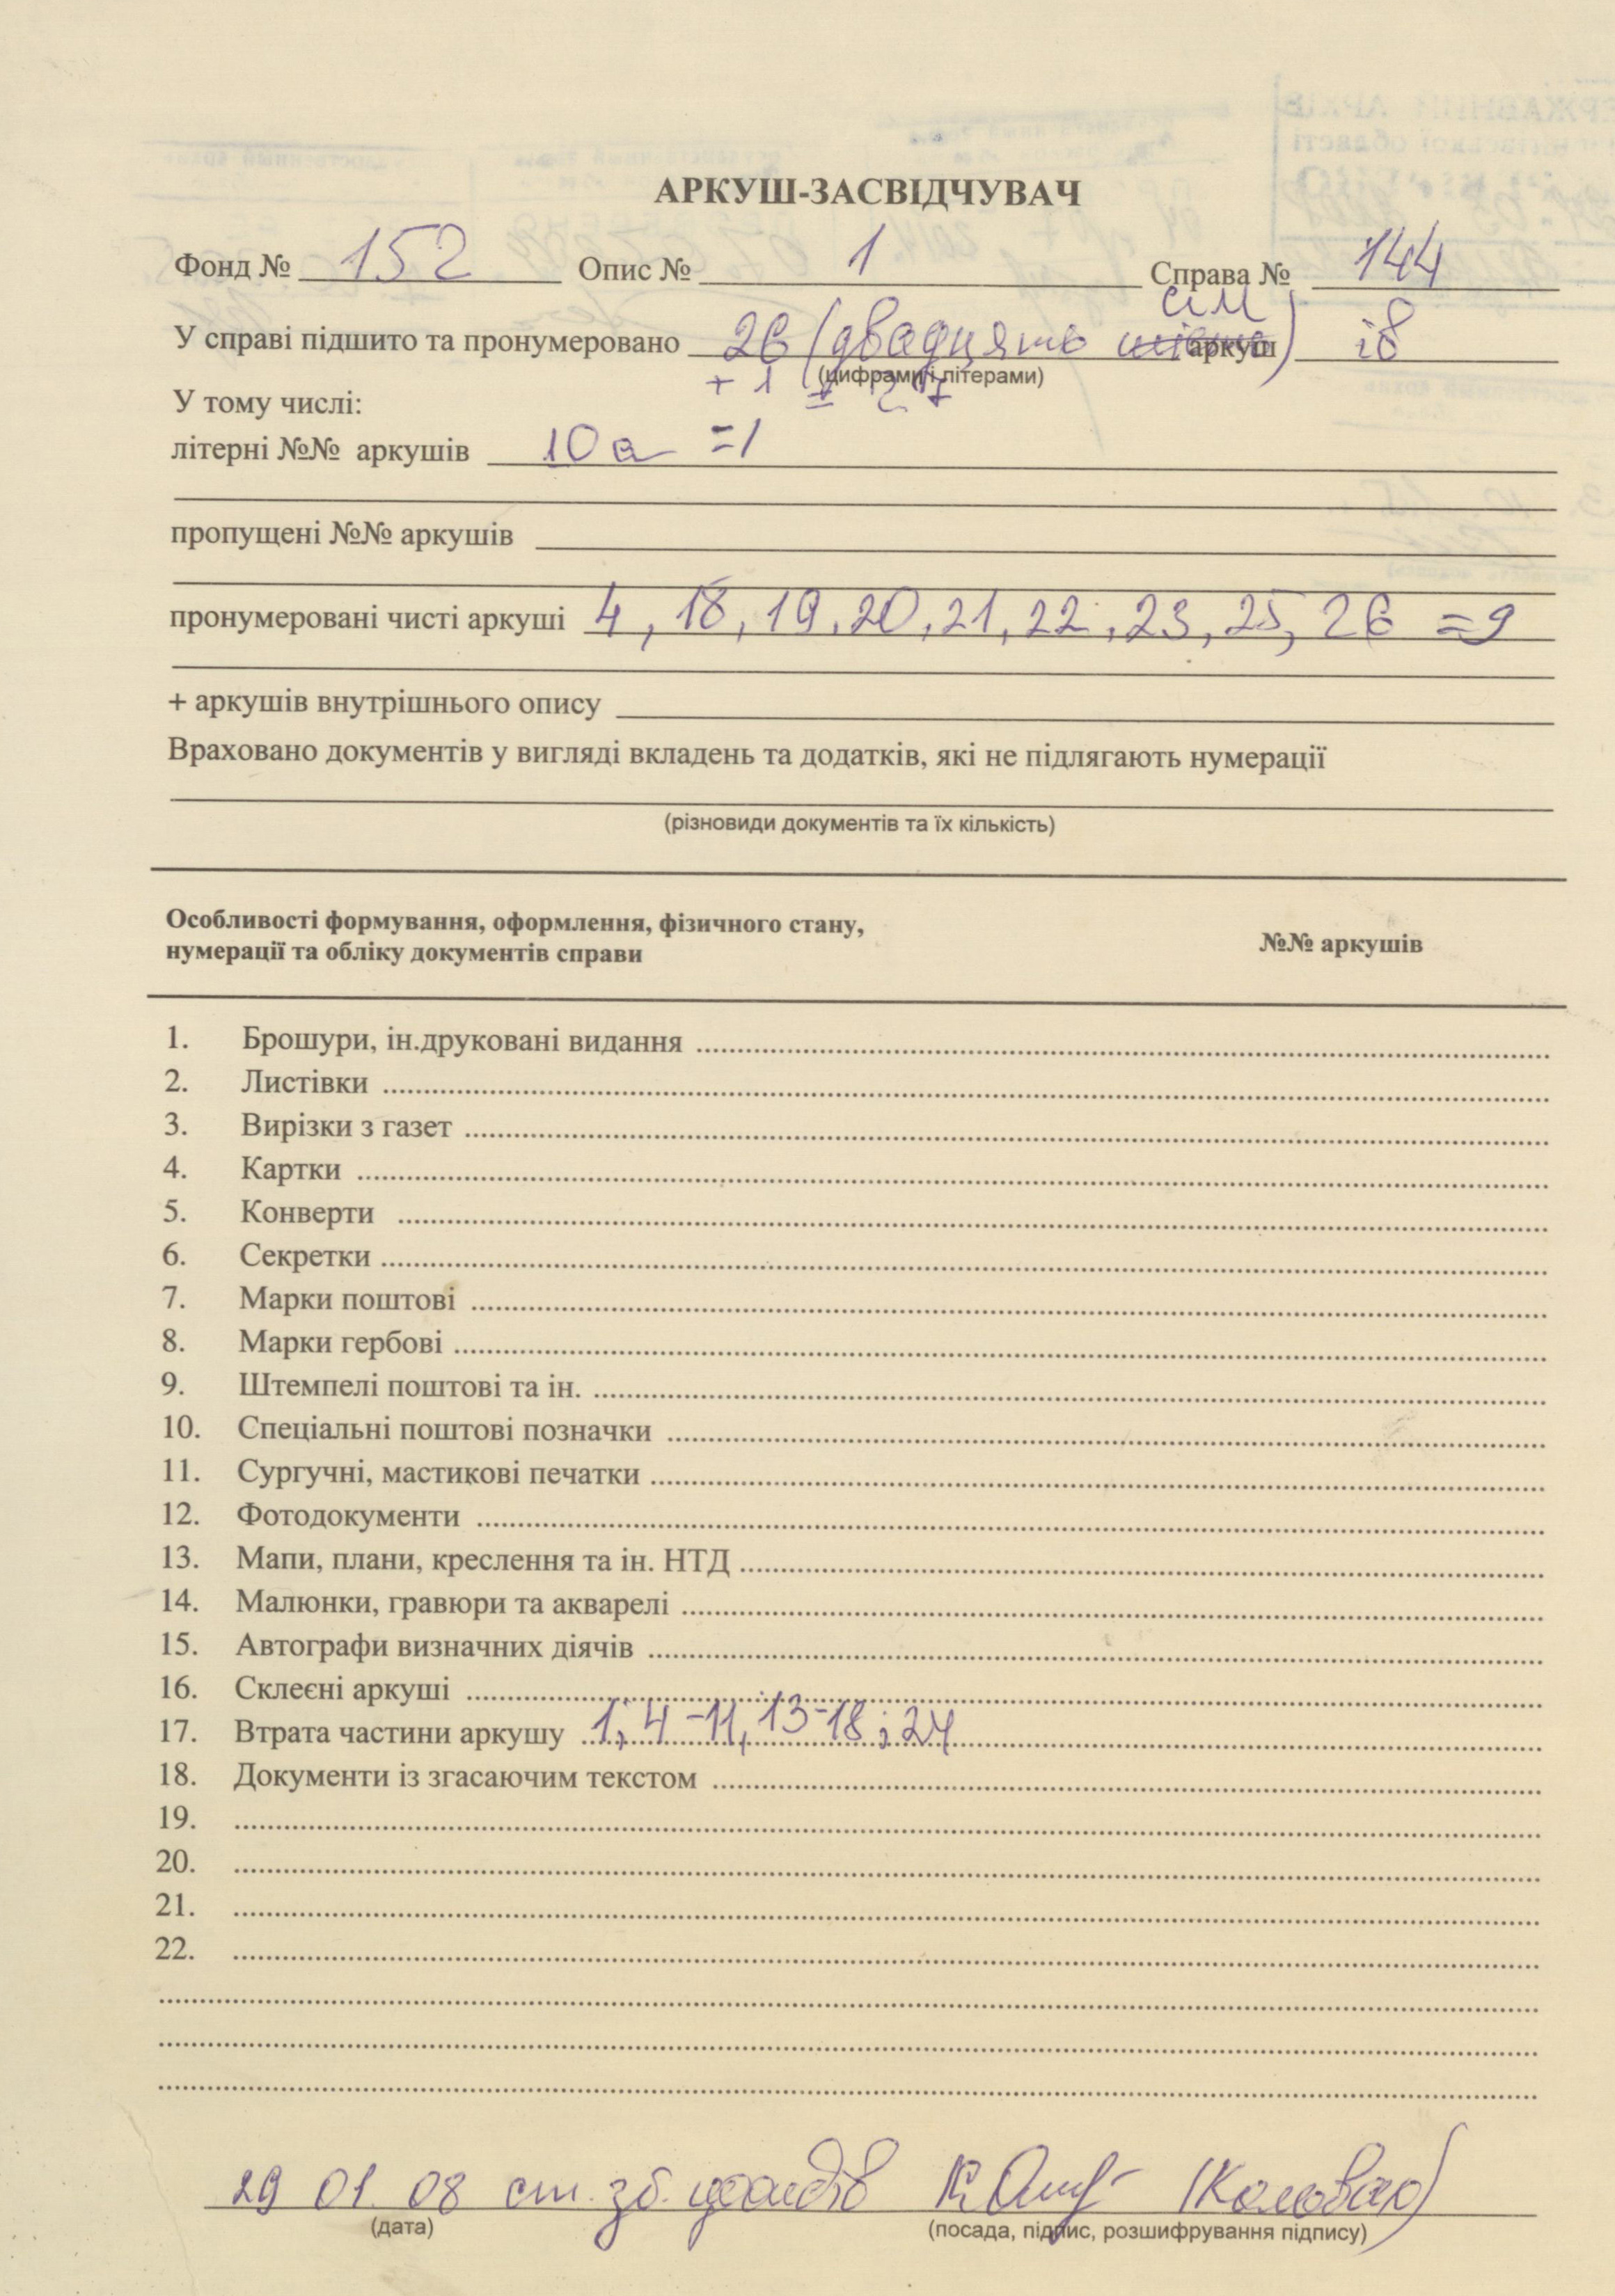 АРКУШ-ЗАСВІДЧУВАЧ
Фонд № 152 Опис № 1 Справа № 144
сім
У справі підшито та пронумеровано 26 (двадцять шість) аркуш ів
(цифрами і літерами)
+ 1 = 27
У тому числі:
літерні №№ аркушів 10а =1
пропущені №№ аркушів
пронумеровані чисті аркуші 4, 18, 19, 20, 21, 22, 23, 25, 26 =9
+ аркушів внутрішнього опису
Враховано документів у вигляді вкладень та додатків, які не підлягають нумерації
(різновиди документів та їх кількість)
Особливості формування, оформлення, фізичного стану,
нумерації та обліку документів справи №№ аркушів
1. Брошури, ін.друковані видання
2. Листівки
3. Вирізки з газет
4. Картки
5. Конверти
6. Секретки
7. Марки поштові
8. Марки гербові
9. Штемпелі поштові та ін.
10. Спеціальні поштові позначки
11. Сургучні, мастикові печатки
12. Фотодокументи
13. Мапи, плани, креслення та ін. НТД
14. Малюнки, гравюри та акварелі
15. Автографи визначних діячів
16. Склеєні аркуші
17. Втрата частини аркушу 1; 4-11, 13-18; 24
18. Документи із згасаючим текстом
19.
20.
21.
22.
29 01. 08 ст. зб. фондів
(дата) (посада, підпис, розшифрування підпису)